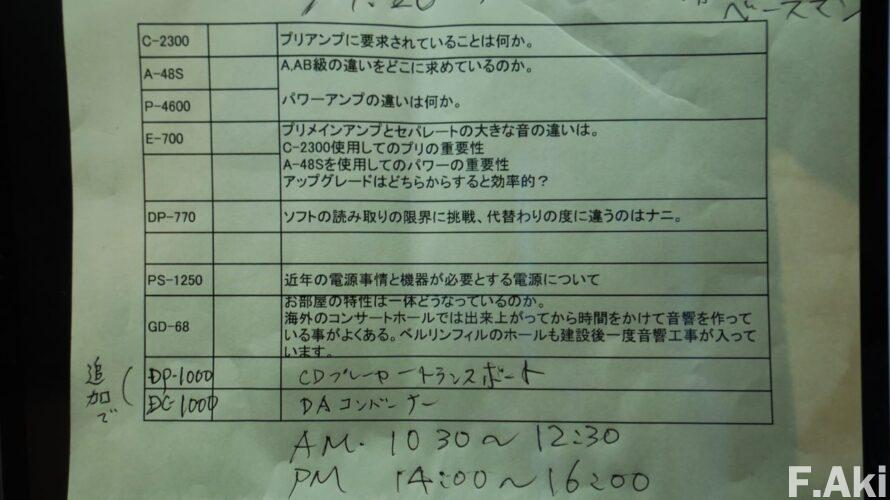 ベースマン
C-2300 プリアンプに要求されていることは何か。
A-48S A,AB級の違いをどこに求めているのか。
P-4600 パワーアンプの違いは何か。
E-700 プリメインアンプとセパレートの大きな音の違いは。
C-2300使用してのプリの重要性
A-48Sを使用してのパワーの重要性
アップグレードはどちらからすると効率的?
DP-770 ソフトの読み取りの限界に挑戦、代替わりの度に違うのはナニ。
PS-1250 近年の電源事情と機器が必要とする電源について
GD-68 お部屋の特性は一体どうなっているのか。
海外のコンサートホールでは出来上がってから時間をかけて音響を作って
いる事がよくある。ベルリンフィルのホールも建設後一度音響工事が入って
います。
追加で
DP-1000 CDプレーヤートランスポート
DC-1000 DAコンバーター
AM. 10 30~12:30
PM 14:00~16:00
F.Aki